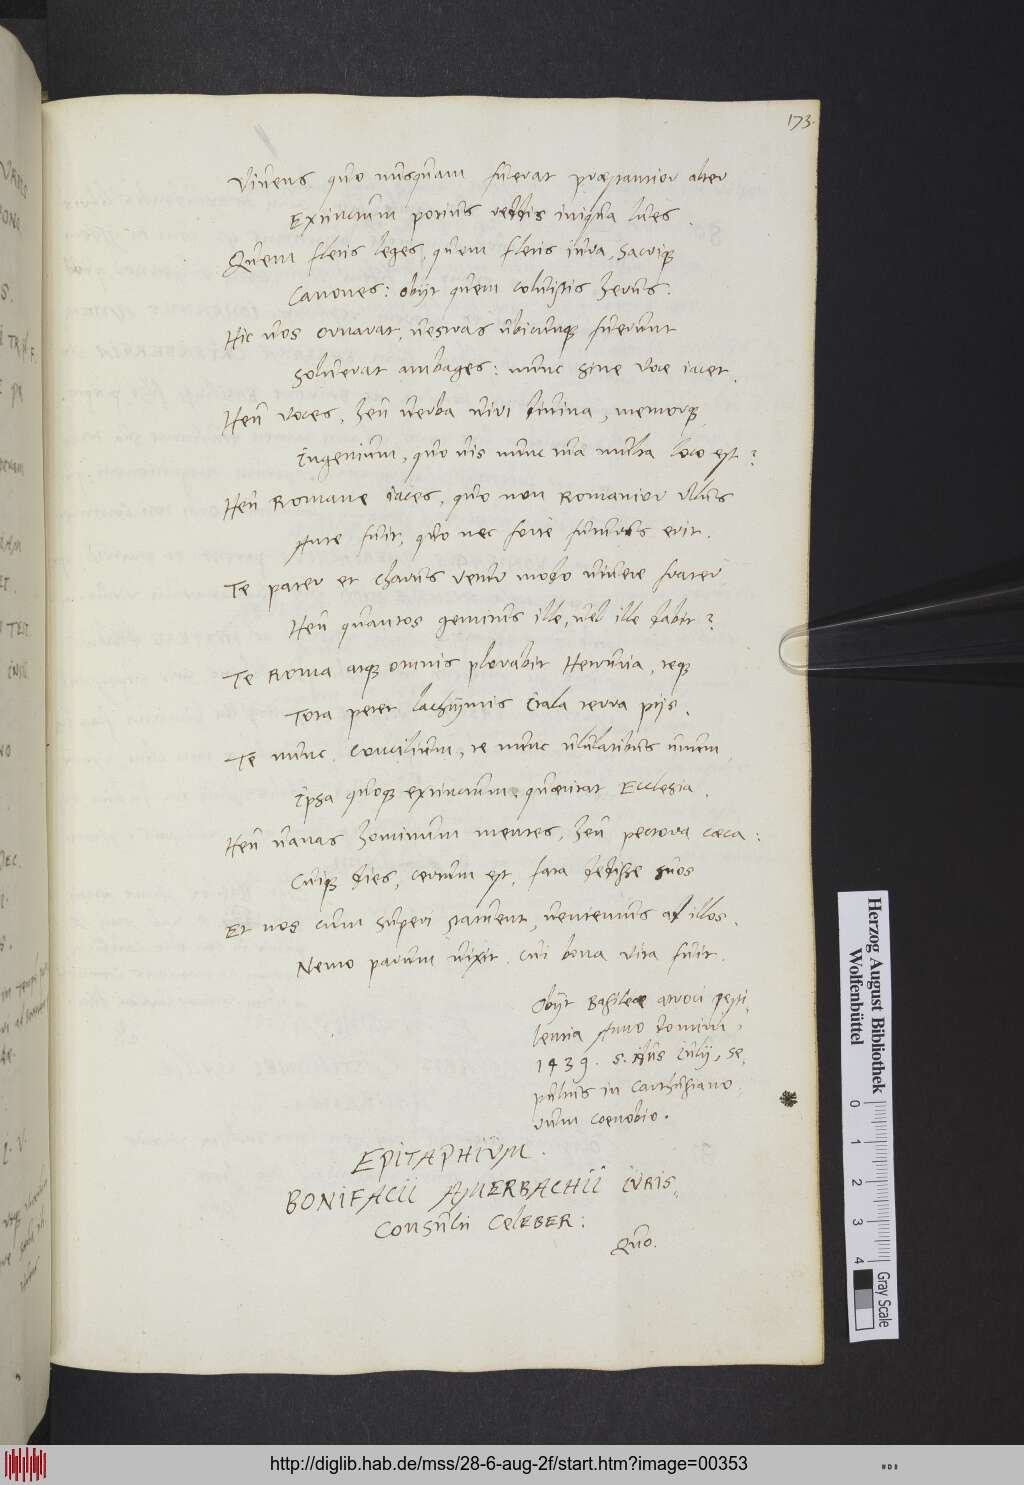 173.
Viuens quo nusquam fuerat præstantior alter
Extinctum potius reddis iniqua lues.
Quem fletis leges, quem fletis iura, sacrique
Canones: obijt quem coluistis herus.
Hic uos ornarat, uestras ubicunque fuerunt
Soluerat ambages: nunc sine uoce iacet.
Heu uoces, heu uerba uiri diuina, memorque
Ingenium, quo uis nunc tua multa loco est?
Heu Romane iaces, quo non Romanior ullus
Ante fuit, quo nec forte futurus erit.
Te pater et charus uentur modo uiuere frater
Heu quantos gemitus ille, uel ille dabit?
Te Roma atque omnis plorabit Hetruria, teque
Tota petet lachrymis Itala terra pijs.
Te nunc Concilium, te nunc ululatibus unum
Ipsa quoque extinctum quæritat Ecclesia.
Heu uanas hominum mentes, heu pectora cæca:
Cuique dies, certum est, fata dedisse suos
Et nos cum superi statuent, ueniemus ad illos.
Nemo parum uixit, cui bona uita fuit.
Obijt Basileæ atroci pesti,
lentia Anno domini,
1439. 5. Idus Iulij, se,
pultus in Carthusiano,
rum coenobio.
EPITAPHIUM.
BONIFACII AMERBACHII IVRIS,
Consulti CELEBER:
Quo.
Herzog August Bibliothek
Wolfenbüttel
0 1 2 3 4
Gray Scale
http://diglib.hab.de/mss/28-6-aug-2f/start.htm?image=00353